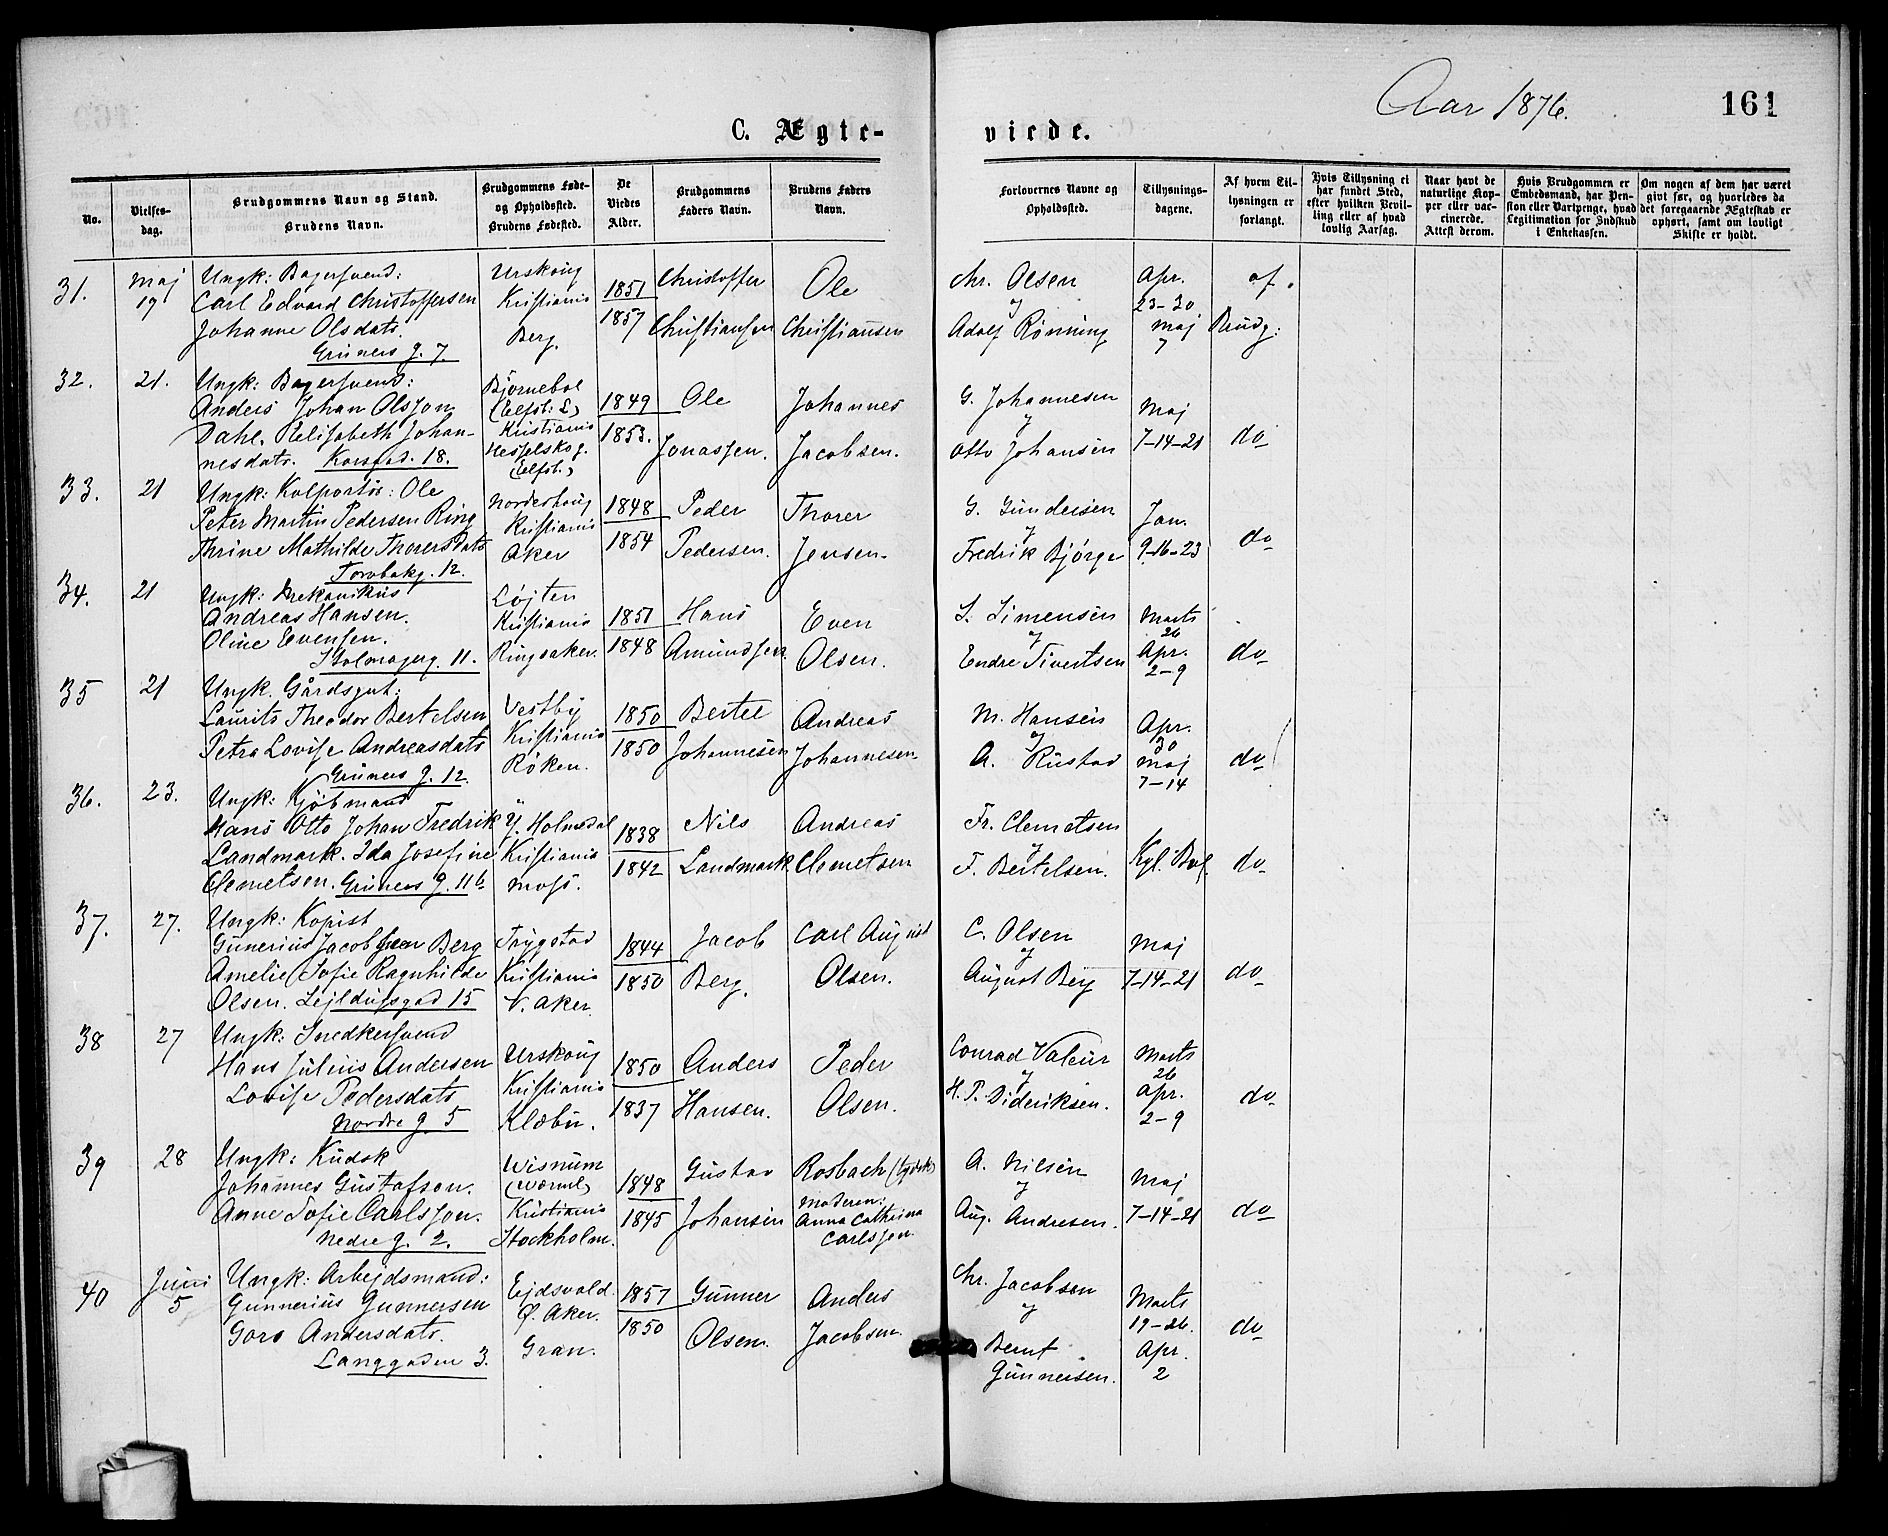 Aar 1876.
161
C. Ægte-
viede.
No.
Vielses-
dag.
Brudgommens Navn og Stand.
Brudens Navn.
Brudgommens Føde-
og Opholdssted.
Brudens Fødested.
De
Viedes
Alder.
Brudgommens
Faders Navn.
Brudens Faders
Navn.
Forlovernes Navne og
Opholdssted.
Tillysnings-
dagene.
Af hvem Til-
lysningen er
forlangt.
Hvis Tillysning ei
har fundet Sted,
efter hvilken Bevil-
ling eller af hvad
lovlig Aarsag.
Naar havt de
naturlige Kop-
per eller vac-
cinerede.
Attest derom.
Hvis Brudgommen er
Embedsmand, har Pen-
sion eller Vartpenge, hvad
Legitimation for Indskud
i Enkekassen.
Om nogen af dem har været
gift før, og hvorledes da
det foregaaende Ægteskab er
ophørt, samt om lovligt
Skifte er holdt.
31.
Maj
19
Ungk: Bagersvend:
Carl Edvard Christoffersen
Johanne Olsdatr.
Grüners g. 7.
Urskoug
Kristiania
Berg.
1851
1857
Christoffer
Christiansen
Ole
Christiansen
Chr. Olsen
og
Adolf Rønning
Apr.
23-30
Maj
7
af
Brudg:
32.
21.
Ungk: Bagersvend:
Anders Johan Olsson
Dahl. Elisabeth Johan-
nesdatr. Korsgad. 18.
Bjørnebol
(Elfsb: L)
Kristiania
Hesselskog.
(Elfsb.)
1849
1853.
Ole
Jonassen.
Johannes
Jacobsen.
G. Johannesen
og
Otto Johansen
Maj
7-14-21
do
33.
21
Ungk: Kolportør: Ole
Peter Martin Pedersen Ring
Thrine Mathilde Thorersdatr
Torvbakg. 12.
Norderhoug
Kristiania
Aker
1848
1854
Peder
Pedersen.
Thorer
Jensen.
G. Gundersen
og
Fredrik Bjørge
Jan.
9-16-23
do
34.
21
Ungk: Mekanikus
Andreas Hansen.
Oline Evensen.
Stolmagerg. 11.
Løjten
Kristiania
Ringsaker.
1851
1848
Hans
Amundsen.
Even
Olsen.
S. Simensen
og
Endre Sivertsen
Marts
26
Apr.
2-9
do
35
21
Ungk. Gårdsgut:
Laurits Theodor Bertelsen
Petra Lovise Andreasdatr
Grüners g. 12.
Vestby
Kristiania
Røken.
1850
1850
Bertel
Johannesen
Andreas
Johannesen.
M. Hansen
og
A. Rustad
Apr.
30
Maj
7-14
do
36.
23.
Ungk: Kjøbmand
Hans Otto Johan Fredrik
Landmark. Ida Josefine
Clemetsen. Grüners g. 11b
Y. Holmedal
Kristiania
Moss.
1838
1842
Nils
Landmark
Andreas
Clemetsen
Fr. Clemetsen
og
F. Bertelsen.
Kgl. Bvl.
do
37.
27.
Ungk: Kopist
Gunerius Jacobsen Berg
Amelie Sofie Ragnhilde
Olsen. Sejldugsgad 15
Trygstad
Kristiania
V. Aker.
1844
1850
Jacob
Berg.
Carl August
Olsen.
C. Olsen
og
August Berg
Maj
7-14-21
do
38
27
Ungk: Snedkersvend
Hans Julius Andersen
Lovise Pedersdatr
Nordre g. 5
Urskoug
Kristiania
Klæbu.
1850
1837
Anders
Hansen.
Peder
Olsen.
Conrad Valeur
og
H. P. Dideriksen.
Marts
26
Apr.
2-9
do
39
28
Ungk: Kudsk
Johannes Gustafson.
Anne Sofie Carlsson.
Nedre g. 2.
Wisnum
(Wörml)
Kristiania
Stockholm.
1848
1845
Gustav
Johansen
Rosbach (tydsk)
Moderen:
Anna Cathrina
Carlsson.
A. Nilsen
og
Aug. Andresen.
Maj
7-14-21
do
40
Juni
5
Ungk: Arbejdsmand:
Gunnerius Gunnersen
Goro Andersdatr.
Langgaden 3.
Ejdsvold.
Ø. Aker.
Gran.
1857
1850
Gunner
Olsen.
Anders
Jacobsen.
Chr. Jacobsen
og
Bernt
Gunnersen.
Marts
19-26.
Apr.
2
do